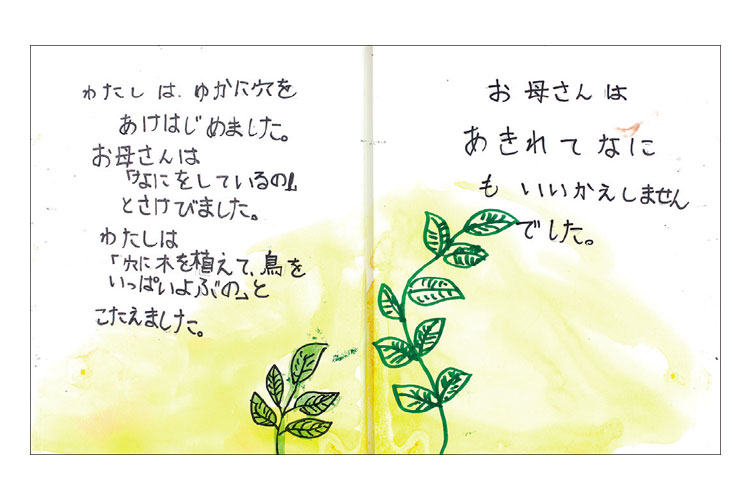 わたしは、ゆかに穴を
あけはじめました。
お母さんは
「なにをしているの」
とさけびました。
わたしは
「穴に木を植えて、鳥を
いっぱいよぶの。」と
こたえました。
お母さんは
あきれてなに
もいいかえしません
でした。